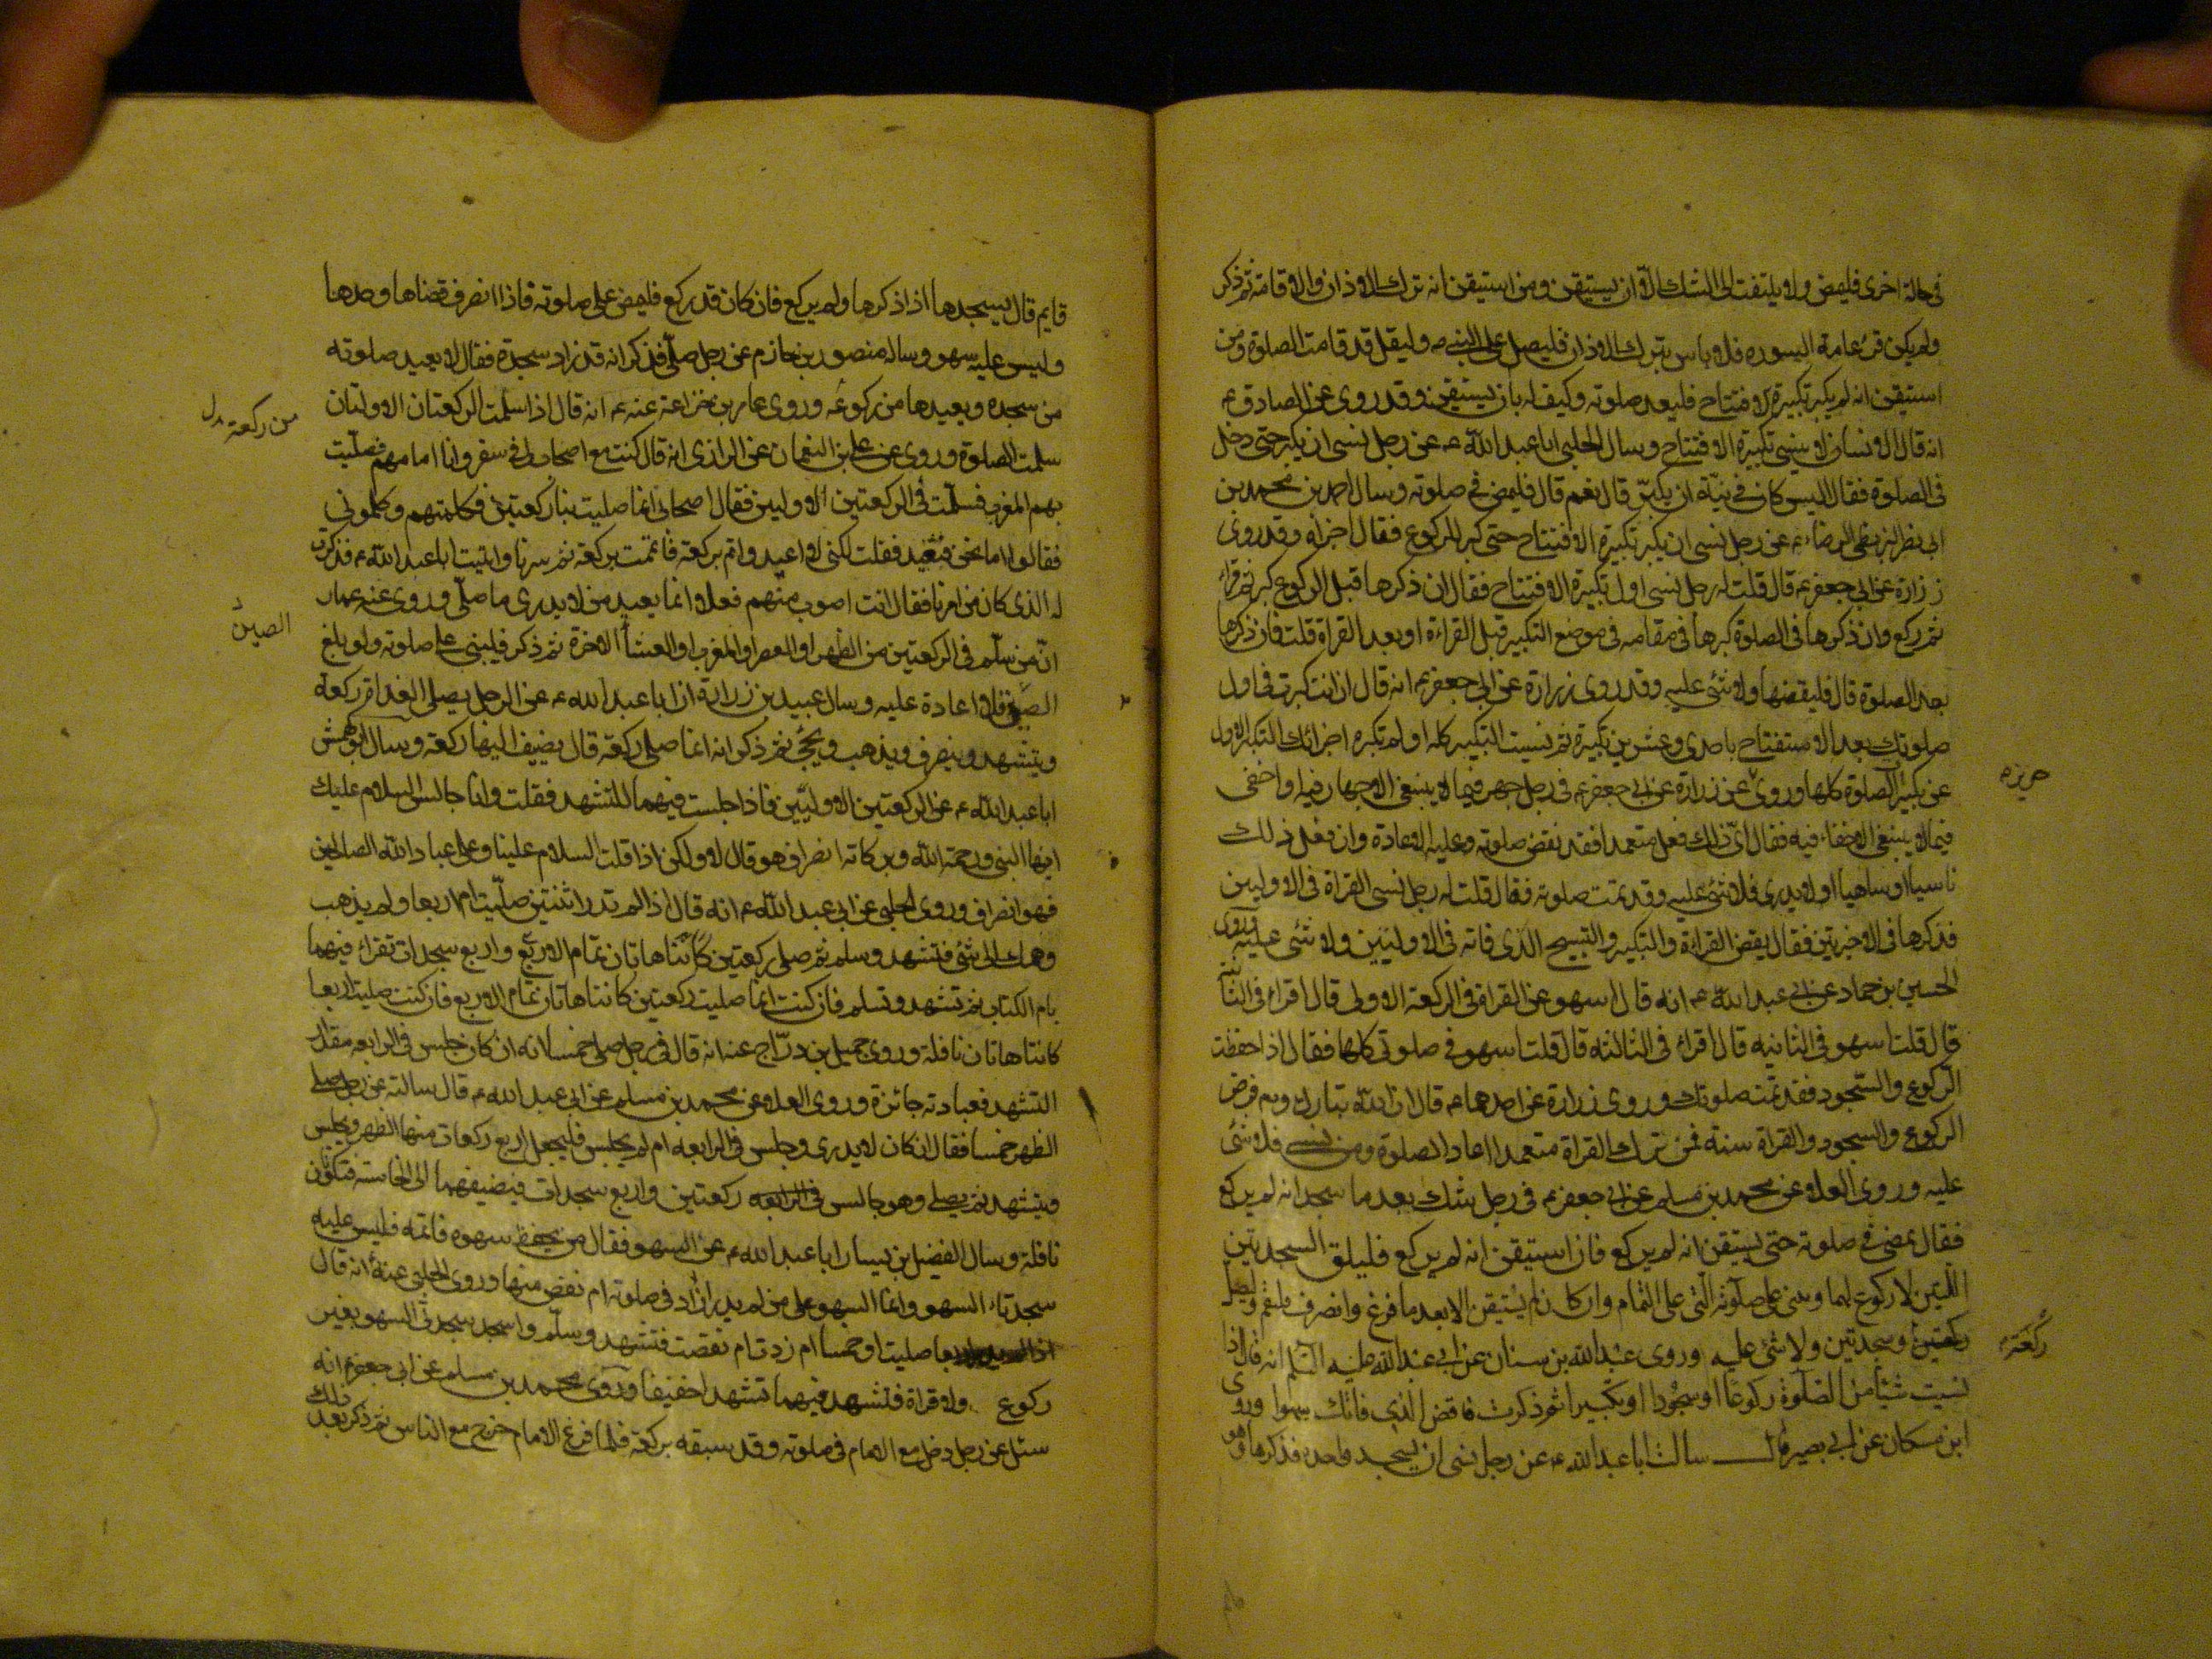 في حالة اخرى فليمض ولا يلتفت الى الشك الا ان يستيقن ومن استيقن انه ترك الاذان والاقامة ثم ذكر
فلا باس بترك الاذان فليصل على النبي ص وليقل قد قامت الصلوة ومن
استيقن انه لم يكبر تكبيرة الافتتاح فليعد صلوته وكيف له بان يستيقن وقد روى عن الصادق ع
انه قال الانسان لا ينسى تكبيرة الافتتاح وسال الحلبي ابا عبد الله ع عن رجل نسى ان يكبر حتى دخل
في الصلوة فقال اليس كان في نيته ان يكبر قال نعم قال فليمض في صلوته وسال احمد بن محمد بن
ابي نصر البزنطي الرضا ع عن رجل نسى ان يكبر تكبيرة الافتتاح حتى كبر للركوع فقال اجزاه وقد روى
زرارة عن ابي جعفر ع قال قلت له رجل نسى اول تكبيرة الافتتاح فقال ان ذكرها قبل الركوع كبر ثم قراء
ثم ركع وان ذكرها في الصلوة كبرها في مقامه في موضع التكبير قبل القراءة او بعد القراة قلت فان ذكرها
بعد الصلوة قال فليقضها ولا شئ عليه وقد روى زرارة عن ابي جعفر ع انه قال ان انت كبرت في اول
صلوتك بعد الاستفتاح باحدى وعشرين تكبيرة ثم نسيت التكبير كله او لم تكبره اجزائك التكبير الاول
عن تكبير الصلوة كلها وروى عن زرارة عن ابي جعفر ع في رجل جهر فيما لا ينبغي الاجهار فيه او اخفى
حريز
فيما لا ينبغي الاخفاء فيه فقال اي ذلك فعل متعمدا فقد نقض صلوته وعليه الاعادة وان فعل ذلك
ناسيا او ساهيا او لا يدري فلا شئ عليه وقد تمت صلوته فقال قلت له رجل نسى القراة في الاوليين
فذكرها في الاخيرتين فقال يقض القراءة والتكبير والتسبيح الذي فاته في الاوليين ولا شئ عليه وروى
الحسين بن حماد عن ابي عبد الله ع انه قال اسهو عن القراة في الركعة الاولى قال اقراء في الثانية
قال قلت اسهو في الثانيه قال اقراء في الثالثه قال قلت اسهو في صلوتي كلها فقال اذا حفظت
الركوع والسجود فقد تمت صلوتك وروى زرارة عن احدهما ع قال ان الله تبارك وتع فرض
الركوع والسجود والقراة سنة فمن ترك القراة متعمدا اعاد الصلوة ومن نسى فلا شئ
عليه وروى العلا عن محمد بن مسلم عن ابي جعفر ع في رجل شك بعد ما سجد انه لم يركع
فقال يمضى في صلوته حتى يستيقن انه لم يركع فان استيقن انه لم يركع فليلق السجدتين
اللتين لا ركوع لهما ويبنى على صلوته التي على التمام وان كان لم يستيقن الا بعد ما فرغ وانصرف فليقم وليصل
ركعتين وسجدتين ولا شئ عليه وروى عبد الله بن سنان عن ابي عبد الله عليه السلم انه قال اذا
ركعة
نسيت شيئا من الصلوة ركوعا او سجودا او تكبيرا ثم ذكرت فاقض الذى فاتك سهوا وروى
ابن مسكان عن ابي بصير قال سالت ابا عبد الله ع عن رجل نسى ان يسجد واحدة فذكرها وهو
قايم قال يسجدها اذا ذكرها ولم يركع فان كان قد ركع فليمض على صلوته فاذا انصرف قضاها وحدها
وليس عليه سهو وساله منصور بن حازم عن رجل صلى فذكر انه قد زاد سجدة فقال لا يعيد صلوته
من سجده ويعيدها من ركوعه وروى عامر بن خزاعة عنه ع انه قال اذا سلمت الركعتان الاولتان
من ركعة
سلمت الصلوة وروى عن علي بن النعمان عن الرازى انه قال كنت مع اصحاب لي في سفر وانا امامهم فصليت
بهم المغرب فسلمت في الركعتين الاوليين فقال اصحابي انما صليت بنا ركعتين فكلمتهم وكلموني
فقالوا اما نحن فنعيد فقلت لكنى لا اعيد واتم بركعة فاتممت بركعة ثم سرنا واتيت ابا عبد الله ع فذكرت
له الذى كان من امرنا فقال انت اصوب منهم فعلا انما يعيد من لا يدرى ما صلى وروى عنه عمار
ان من سلم في الركعتين من الظهر او العصر او المغرب او العشاء الاخرة ثم ذكر فليبنى على صلوته ولو بلغ
الصين
الصين فلا اعادة عليه وسال عبيد بن زرارة ان ابا عبد الله ع عن الرجل يصلى الغداة ركعة
ويتشهد وينصرف ويذهب ويجئ ثم ذكر انه انما صلى ركعة قال يضيف اليها ركعة وسال ابو كهمش
ابا عبد الله ع عن الركعتين الاوليين فاذا جلست فيهما للتشهد فقلت وانا جالس السلام عليك
ايها النبي ورحمة الله وبركاته انصراف هو قال لا ولكن اذا قلت السلام علينا وعلى عباد الله الصالحين
فهو انصراف وروى الحلبي عن ابي عبد الله ع انه قال اذا لم تدر اثنتين صليت ام اربعا ولم يذهب
وهمك الى شئ فتشهد وسلم ثم صلى ركعتين واربع سجدات تقراء فيهما
بام الكتاب ثم تشهد وتسلم فان كنت انما صليت ركعتين كانتا هاتان تمام الاربع فان كنت صليت اربعا
كانتا هاتان نافلة وروى جميل بن دراج عنه انه قال في رجل صلى خمسا انه ان كان جلس في الرابعه مقدار
التشهد فعبادته جائزة وروى العلا عن محمد بن مسلم عن ابي عبد الله ع قال سالته عن رجل صلى
الظهر خمسا فقال ان كان لا يدرى وجلس في الرابعه ام لم يجلس فليجعل اربع ركعات منها الظهر ويجلس
فيتشهد ثم يصلى وهو جالس ركعتين واربع سجدات فيضيفهما الى الخامسة فتكون
نافلة وسال الفضيل بن يسار ابا عبد الله ع عن السهو فقال من يحفظ سهوه فاتمه فليس عليه
سجدتاء السهو وانما السهو على من لم يدر ازاد في صلوته ام نقص منها وروى الحلبي عنه انه قال
صليت او خمسا ام زدت ام نقصت فتشهد وسلم واسجد سجدتى السهو بغير
ركوع ولا قراة فتشهد فيهما تشهدا خفيفا وروى محمد بن مسلم عن ابي جعفر ع انه
سئل عن رجل دخل مع الامام في صلوته وقد سبقه بركعة فلما فرغ الامام خرج مع الناس ثم ذكر بعد ذلك